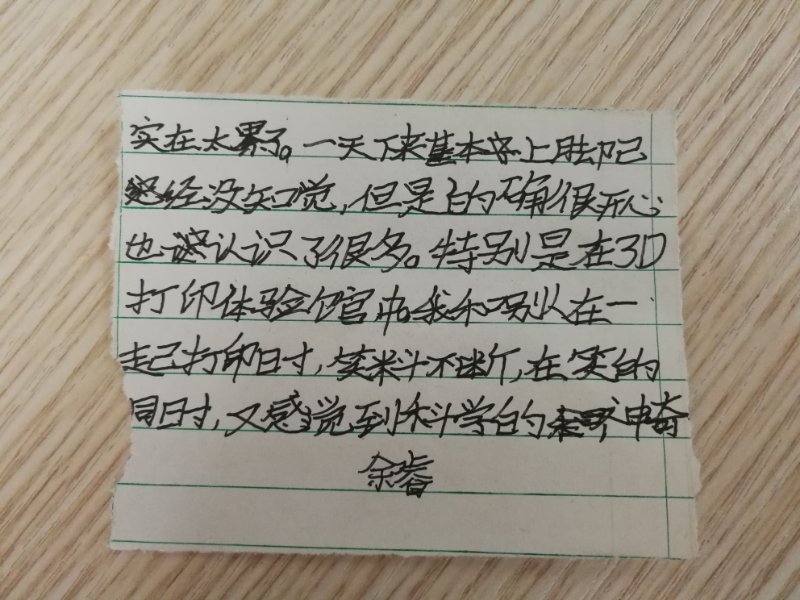 实在太累了。一天下来基本上脚已
经没知觉,但是的确很开心
也认识了很多。特别是在3D
打印体验馆中。我和别在一
起打印时,笑料不断,在笑的
同时,又感觉到科学的神奇
余睿